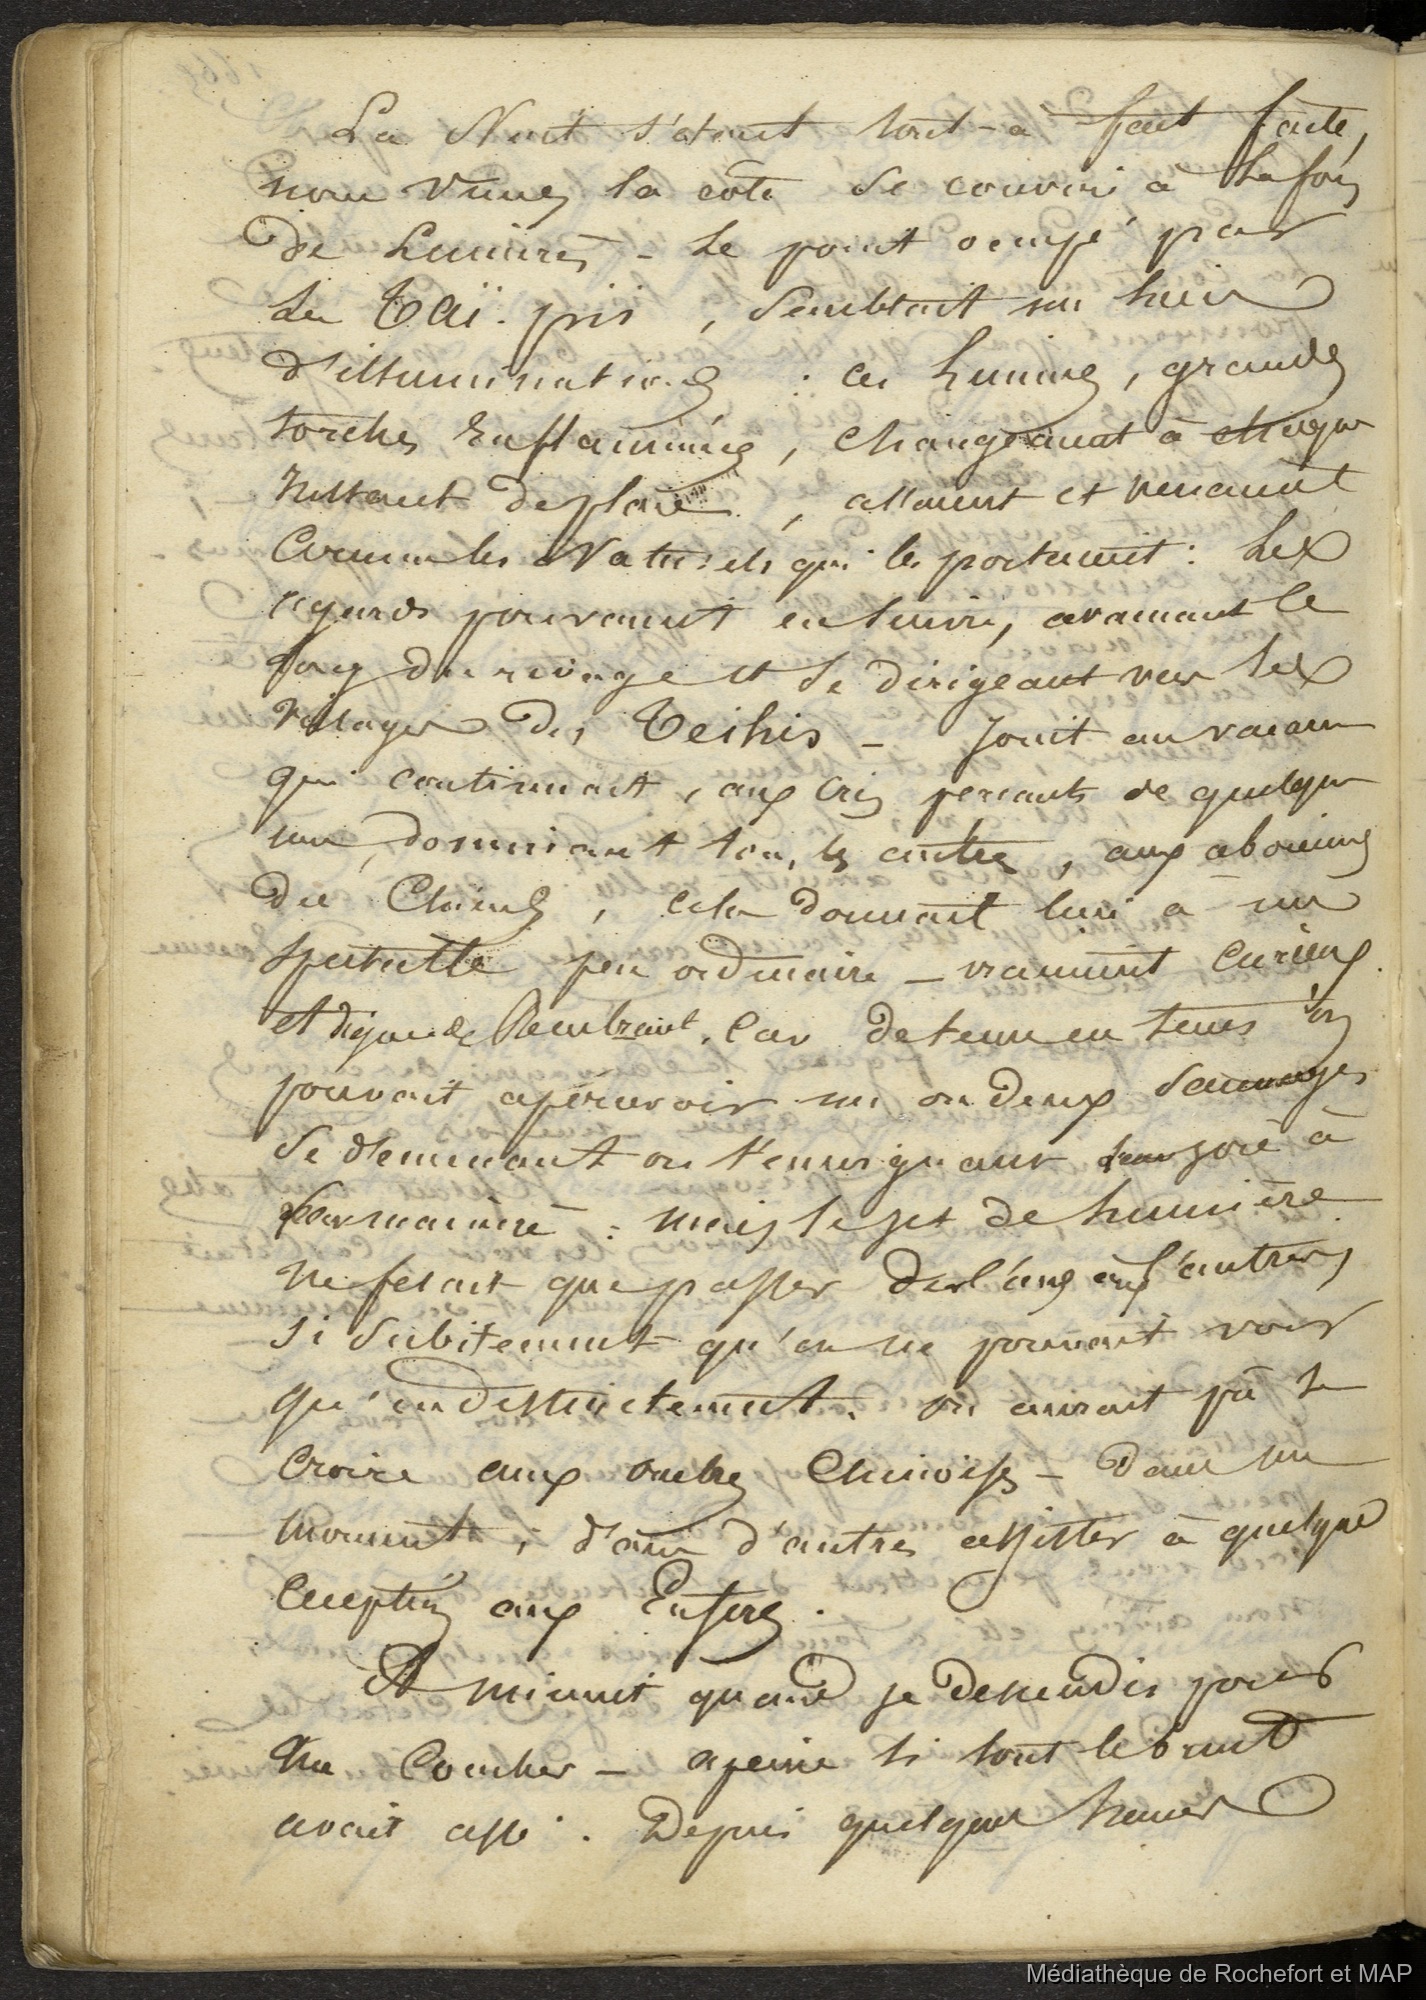 La Nuit s'étant tout-à fait faite,
nous vîmes la côte se couvrir à la fois
de Lumières - Le point occupé par
les Taï-pii, semblait un lieu
d'illuminations : ces Lumières, grandes
torches Enflammées, changeaient à chaque
Instant de place, allaient et venaient
Comme les Naturels qui les portaient : Les
regards pouvaient en suivre, avançant le
long du rivage et se dirigeant vers les
Villages des Teihis - Joint au vacarme
qui continuait, aux cris perçants de quelques
uns, dominant tous les autres, aux aboiemens
des Chiens, cela donnait lieu à un
spectacle peu ordinaire - vraiment curieux
et digne de Rembrant. Car de tems en tems l'on
pouvait apercevoir un ou deux Sauvages
se démenant ou témoignant leur joie à
leur manière : mais le jet de lumière
ne fesait que passer des uns aux autres,
si subitement qu'on ne pouvait voir
qu'indistinctement. On aurait pû se
croire aux ombres Chinoises - dans un
moment, dans d'autres assister à quelque
reception aux Enfers.
A minuit quand je descendis pour
me coucher - apeine si tout le bruit
avait cessé. Depuis quelques heures
Médiathèque de Rochefort et MAP